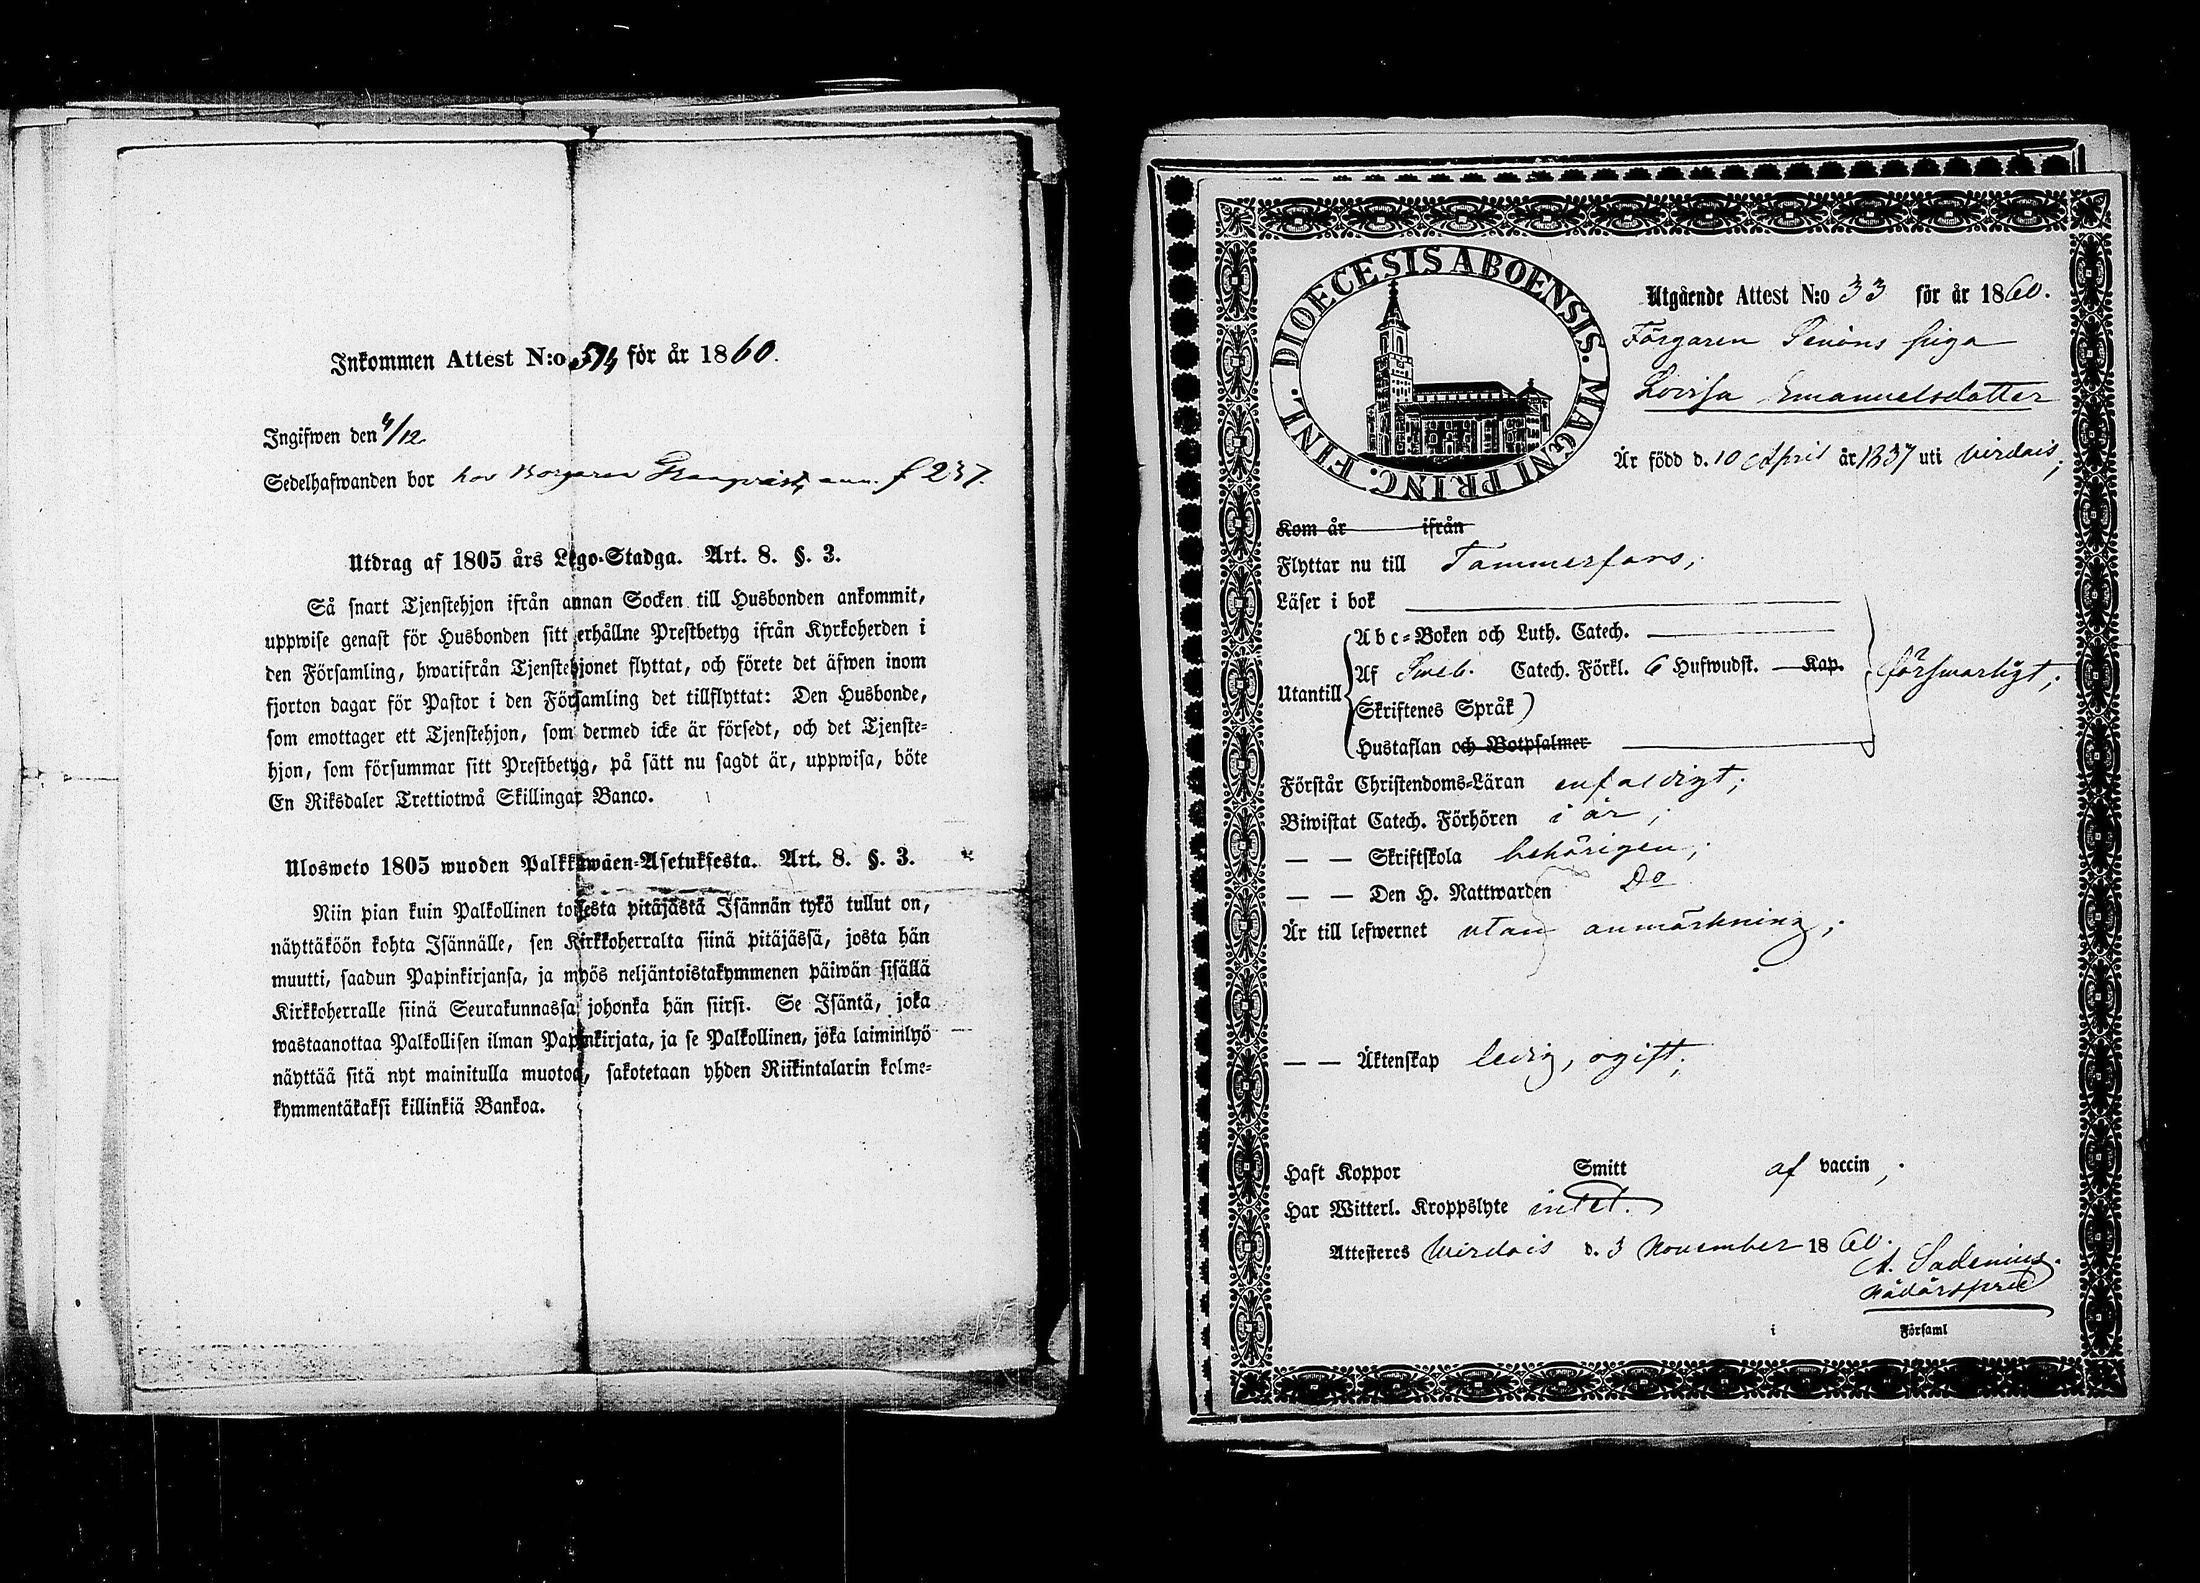 Inkommen Attest N:o 574 för år 1860.
Ingifwen den 4/12
Sedelhafwanden bor hos Borgaren Granqvist, ann. f 237.
Utdrag af 1805 års Lego-Stadga. Art. 8. §. 3.
Så snart Tjenstehjon ifrån annan Socken till Husbonden ankommit,
uppwise genast för Husbonden sitt erhållne Prestbetyg ifrån Kyrkoherden i
den Församling, hwarifrån Tjenstehjonet flyttat, och förete det äfwen inom
fjorton dagar för Pastor i den Församling det tillflyttat: Den Husbonde,
som emottager ett Tjenstehjon, som dermed icke är försedt, och det Tjenste-
hjon, som försummar sitt Prestbetyg, på sätt nu sagdt är, uppwisa, böte
En Riksdaler Trettiotwå Skillingar Banco.
Ulosweto 1805 wuoden Palkkawäen-Asetuksesta. Art. 8. §. 3.
Niin pian kuin Palkollinen toisesta pitäjästä Isännän tykö tullut on,
näyttäköön kohta Isännälle, sen Kirkkoherralta siinä pitäjässä, josta hän
muutti, saadun Papinkirjansa, ja myös neljäntoistakymmenen päiwän sisällä
Kirkkoherralle siinä Seurakunnassa johonka hän siirsi. Se Isäntä, joka
wastaanottaa Palkollisen ilman Papinkirjata, ja se Palkollinen, joka laiminlyö
näyttää sitä nyt mainitulla muotoa, sakotetaan yhden Riikintalarin kolme-
kymmentäkaksi killinkiä Bankoa.
DIOECESIS ABOENSIS. MAGNI PRINC. FINL.
Utgående Attest N:o 33 för år 1860.
Färgaren piga
Lovisa Emanuelsdotter
Är född d. 10 April år 1837 uti Virdois;
Kom år ifrån
Flyttar nu till Tammerfors;
Läser i bok
Abc-Boken och Luth. Catech.
Utantill Af Sveb. Catech. Förkl. 6 Hufwudst. Kap. försvarligt;
Skriftenes Språk)
Hustaflan och Botpsalmer
Förstår Christendoms-Läran enfaldigt;
Biwistat Catech. Förhören i år;
— — Skriftskola behörigen;
— — Den H. Nattwarden Do
Är till lefwernet utan anmärkning;
— — Äktenskap ledig, ogift;
Haft Koppor Smitt af vaccin;
Har Witterl. Kroppslyte intet.
Attesteres Wirdois d. 3 November 1860.
A. Sadenius.
Nådårspred
i Församl